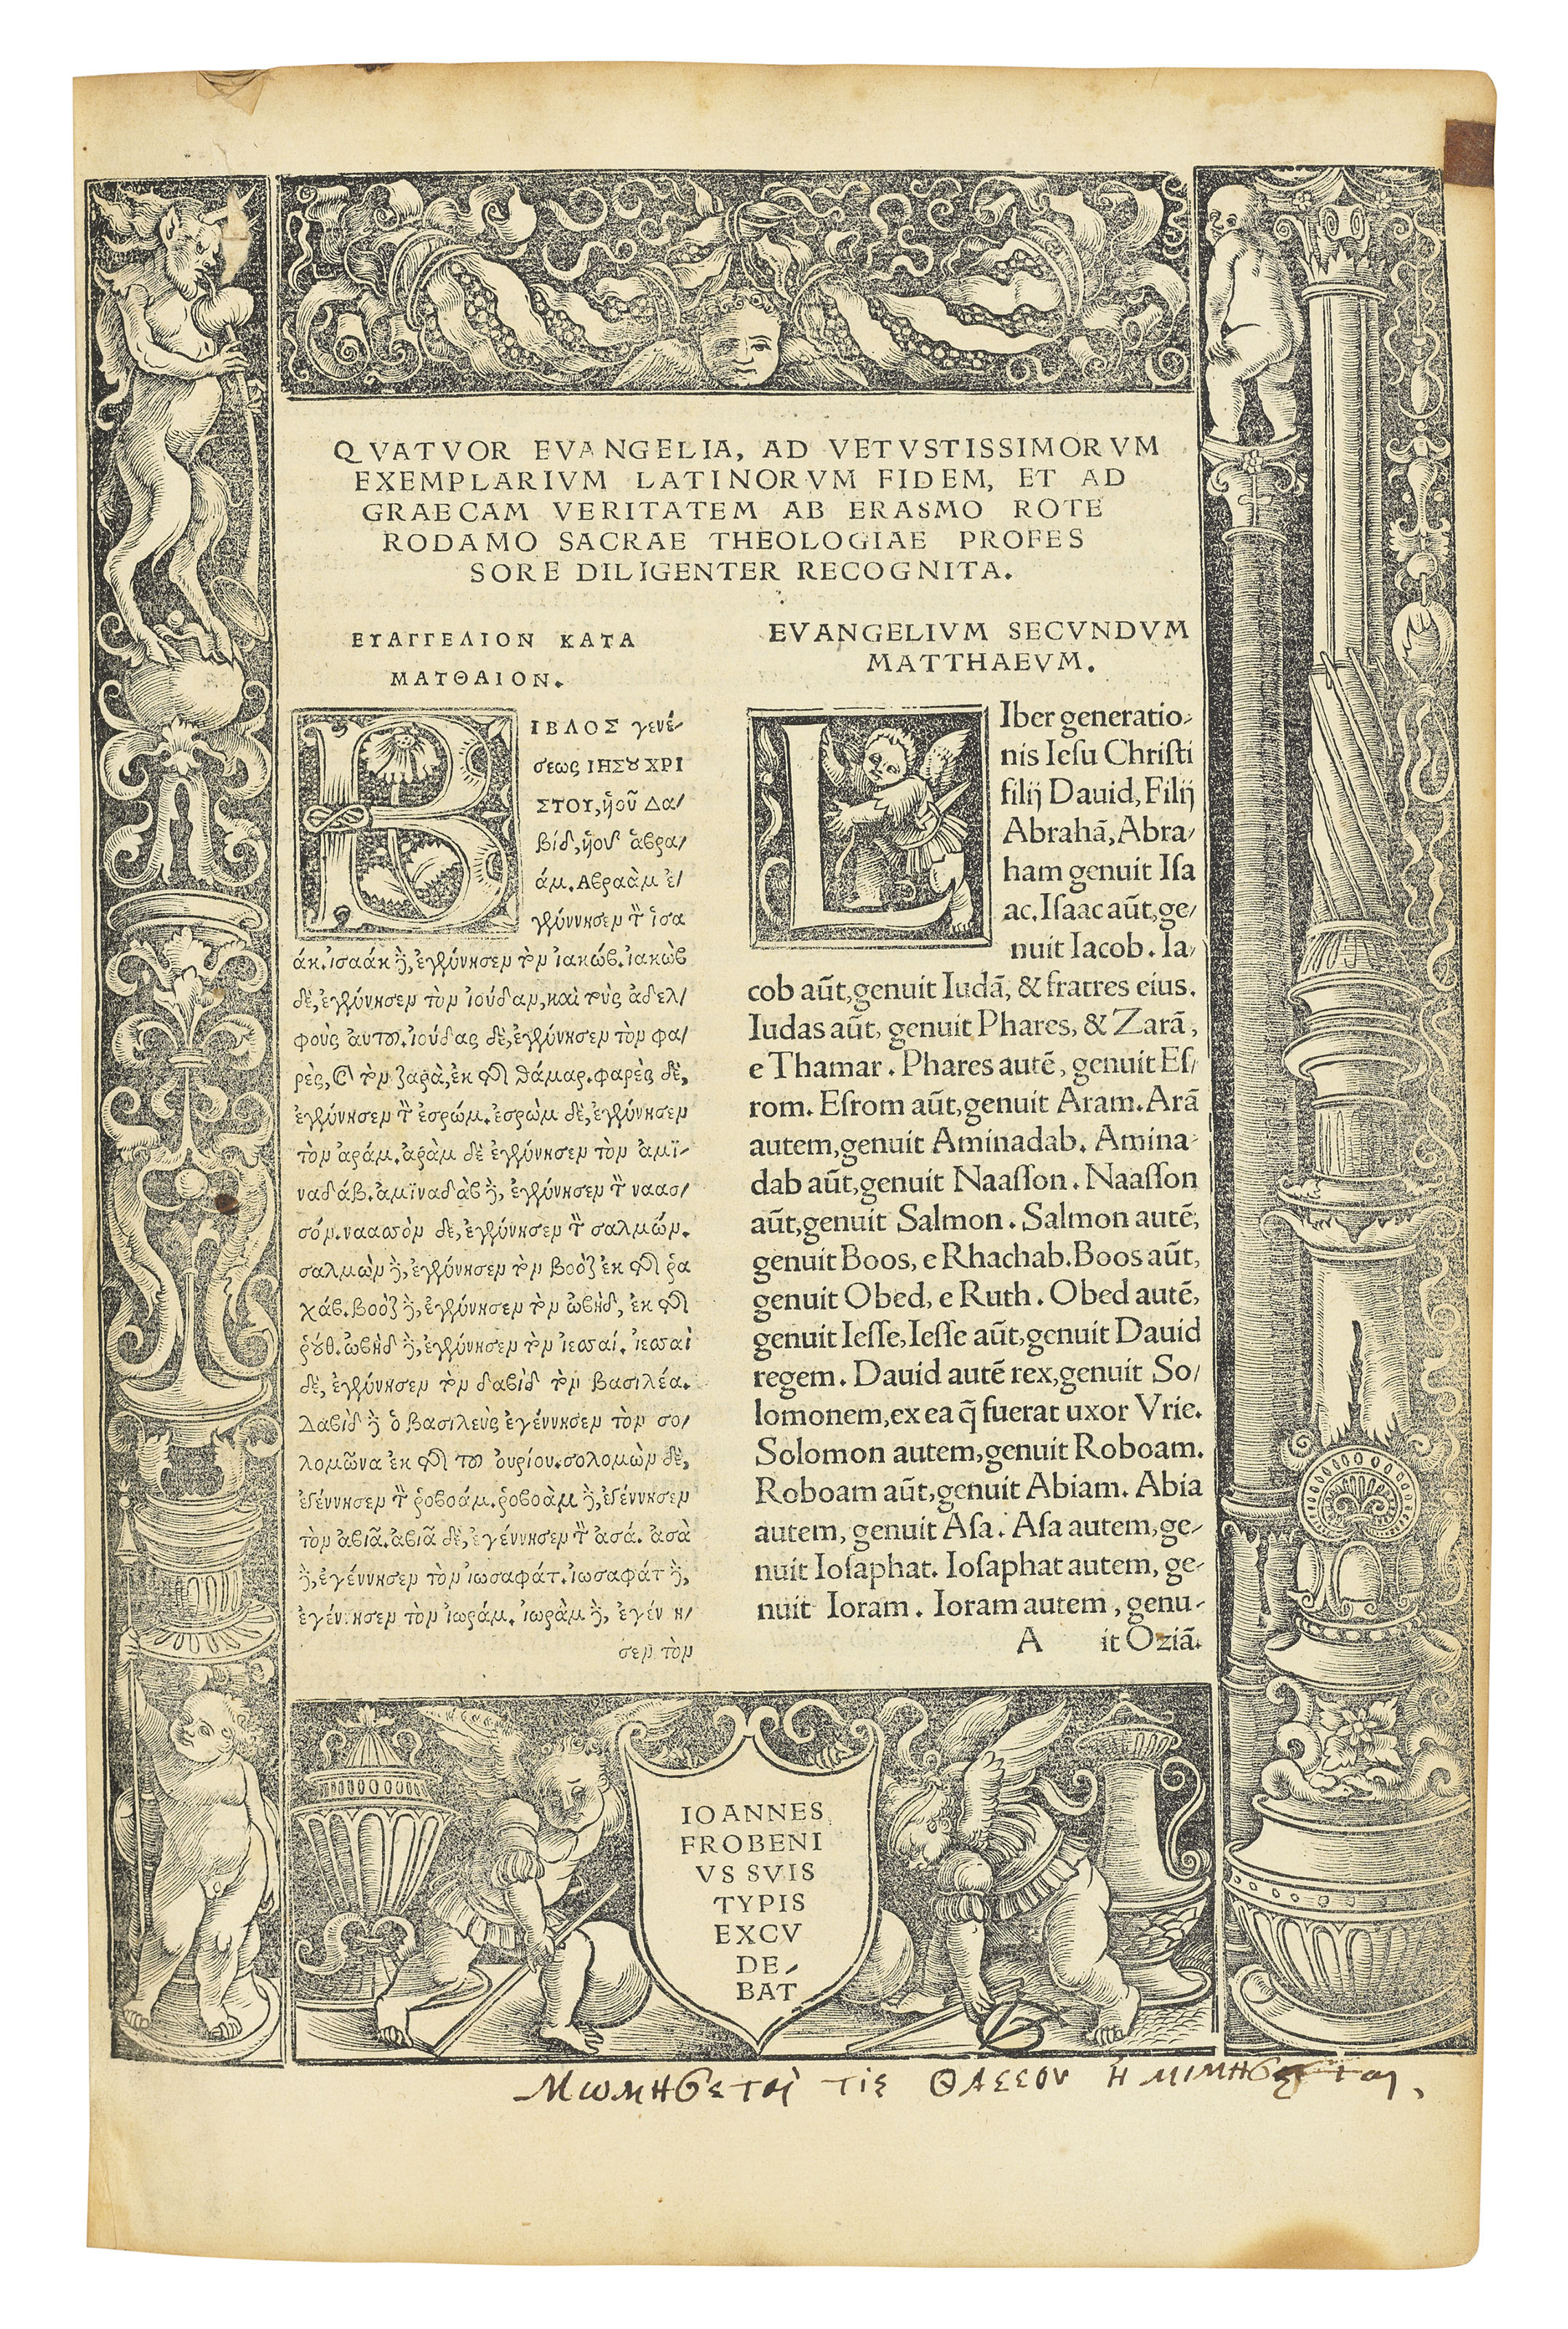 QVATVOR EVANGELIA, AD VETVSTISSIMORVM
EXEMPLARIVM LATINORVM FIDEM, ET AD
GRAECAM VERITATEM AB ERASMO ROTE
RODAMO SACRAE THEOLOGIAE PROFES
SORE DILIGENTER RECOGNITA.
ΕΥΑΓΓΕΛΙΟΝ ΚΑΤΑ
ΜΑΤΘΑΙΟΝ.
ΒΙΒΛΟΣ γενέ-
σεως ΙΗΣȣ ΧΡΙ
ΣΤΟΥ, ὑοῦ Δα/
βίδ, ὑοῦ ἀβρα/
άμ. Αβραὰμ ἐ/
γέννησεν τὸν ἰσα
άκ. ἰσαάκ δὲ, ἐγέννησεν τὸν ἰακώβ. ἰακὼβ
δὲ, ἐγέννησεν τὸν ἰούδαν, καὶ τοὺς ἀδελ/
φοὺς ἀυτοῦ. ἰούδας δὲ, ἐγέννησεν τὸν φα/
ρὲς, καὶ τὸν ζαρὰ, ἐκ τῆς θάμαρ. φαρὲς δὲ,
ἐγέννησεν τὸν ἐσρώμ. ἐσρὼμ δὲ, ἐγέννησεν
τὸν ἀράμ. ἀρὰμ δὲ ἐγέννησεν τὸν ἀμϊ-
ναδάβ. ἀμϊναδὰβ δὲ, ἐγέννησεν τὸν ναασ/
σόν. ναασσὸν δὲ, ἐγέννησεν τὸν σαλμών.
σαλμὼν δὲ, ἐγέννησεν τὸν βοὸζ ἐκ τῆς ῥα
χάβ. βοὸζ δὲ, ἐγέννησεν τὸν ὠβὴδ, ἐκ τῆς
ῥȣθ. ὠβὴδ δὲ, ἐγέννησεν τὸν ἰεσσαί. ἰεσσαὶ
δὲ, ἐγέννησεν τὸν δαβὶδ τὸν βασιλέα.
Δαβὶδ δὲ ὁ βασιλεὺς ἐγέννησεν τὸν σο/
λομῶνα ἐκ τῆς τοῦ ὀυρίου. σολομὼν δὲ,
ἐγέννησεν τὸν ῥοβοάμ. ῥοβοὰμ δὲ, ἐγέννησεν
τὸν ἀβιᾶ. ἀβιᾶ δὲ, ἐγέννησεν τὸν ἀσά. ἀσὰ
δὲ, ἐγέννησεν τὸν ἰωσαφάτ. ἰωσαφάτ δὲ,
ἐγέννησεν τὸν ἰωράμ. ἰωρὰμ δὲ, ἐγέν ν/
σεν τὸν
EVANGELIVM SECVNDVM
MATTHAEVM.
LIber generatio-
nis Iesu Christi
filij Dauid, Filij
Abrahã, Abra/
ham genuit Isa
ac. Isaac aũt, ge/
nuit Iacob. Ia/
cob aũt, genuit Iudã, & fratres eius.
Iudas aũt, genuit Phares, & Zarã,
e Thamar. Phares autẽ, genuit Es/
rom. Esrom aũt, genuit Aram. Arã
autem, genuit Aminadab. Amina-
dab aũt, genuit Naasson. Naasson
aũt, genuit Salmon. Salmon autẽ,
genuit Boos, e Rhachab. Boos aũt,
genuit Obed, e Ruth. Obed autẽ,
genuit Iesse, Iesse aũt, genuit Dauid
regem. Dauid autẽ rex, genuit So/
lomonem, ex ea q̃ fuerat uxor Vrie.
Solomon autem, genuit Roboam.
Roboam aũt, genuit Abiam. Abia
autem, genuit Asa. Asa autem, ge-
nuit Iosaphat. Iosaphat autem, ge-
nuit Ioram. Ioram autem, genu-
A it Oziã.
IOANNES
FROBENI
VS SVIS
TYPIS
EXCV
DE-
BAT
Μωμήσεται τις ΘΑΣΣΟΝ ἢ ΜΙΜΗσεται,